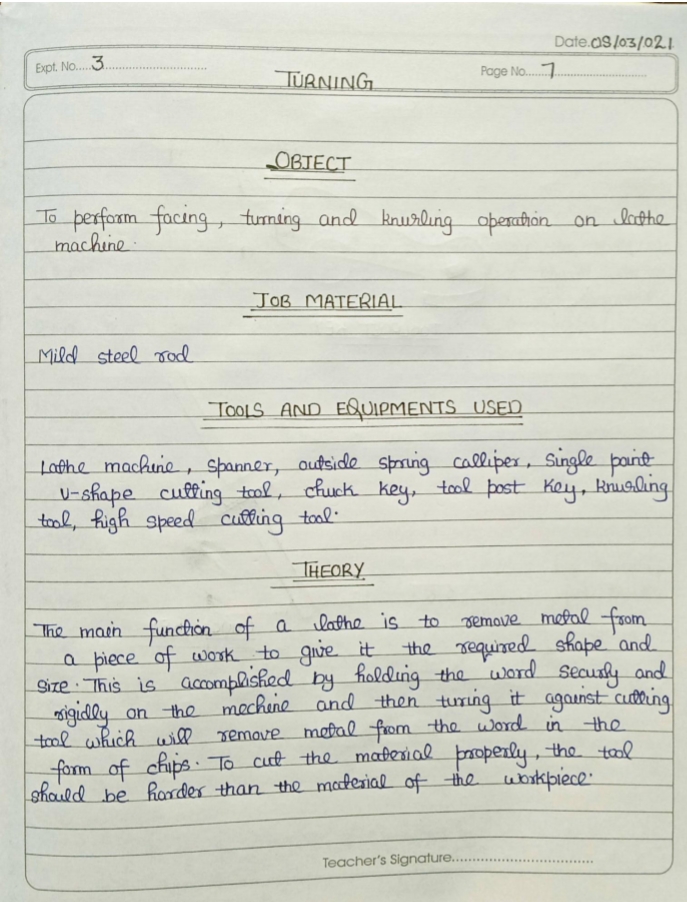 Date. 08/03/021
Expt. No. 3
Page No. 7
TURNING
OBJECT
To perform facing, turning and knurling operation on lathe
machine.
JOB MATERIAL
Mild steel rod
TOOLS AND EQUIPMENTS USED
Lathe machine, spanner, outside spring calliper, single point
V-shape cutting tool, chuck key, tool post key, knurling
tool, high speed cutting tool.
THEORY
The main function of a lathe is to remove metal from
a piece of work to give it the required shape and
size. This is accomplished by holding the word securly and
rigidly on the mechine and then turing it against cutting
tool which will remove metal from the word in the
form of chips. To cut the material properly, the tool
should be harder than the material of the workpiece.
Teacher's Signature